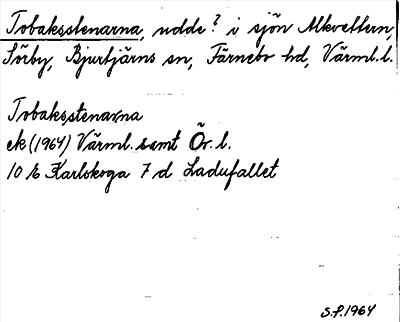 Tobaksstenarna, udde? i sjön Alkvettern,
Sörby, Bjurtjärns sn, Färnebo hd, Värml. l.
Tobaksstenarna
ek (1964) Värml. samt Ör. l.
10 E Karlskoga 7 d Ladufallet
S.P. 1964